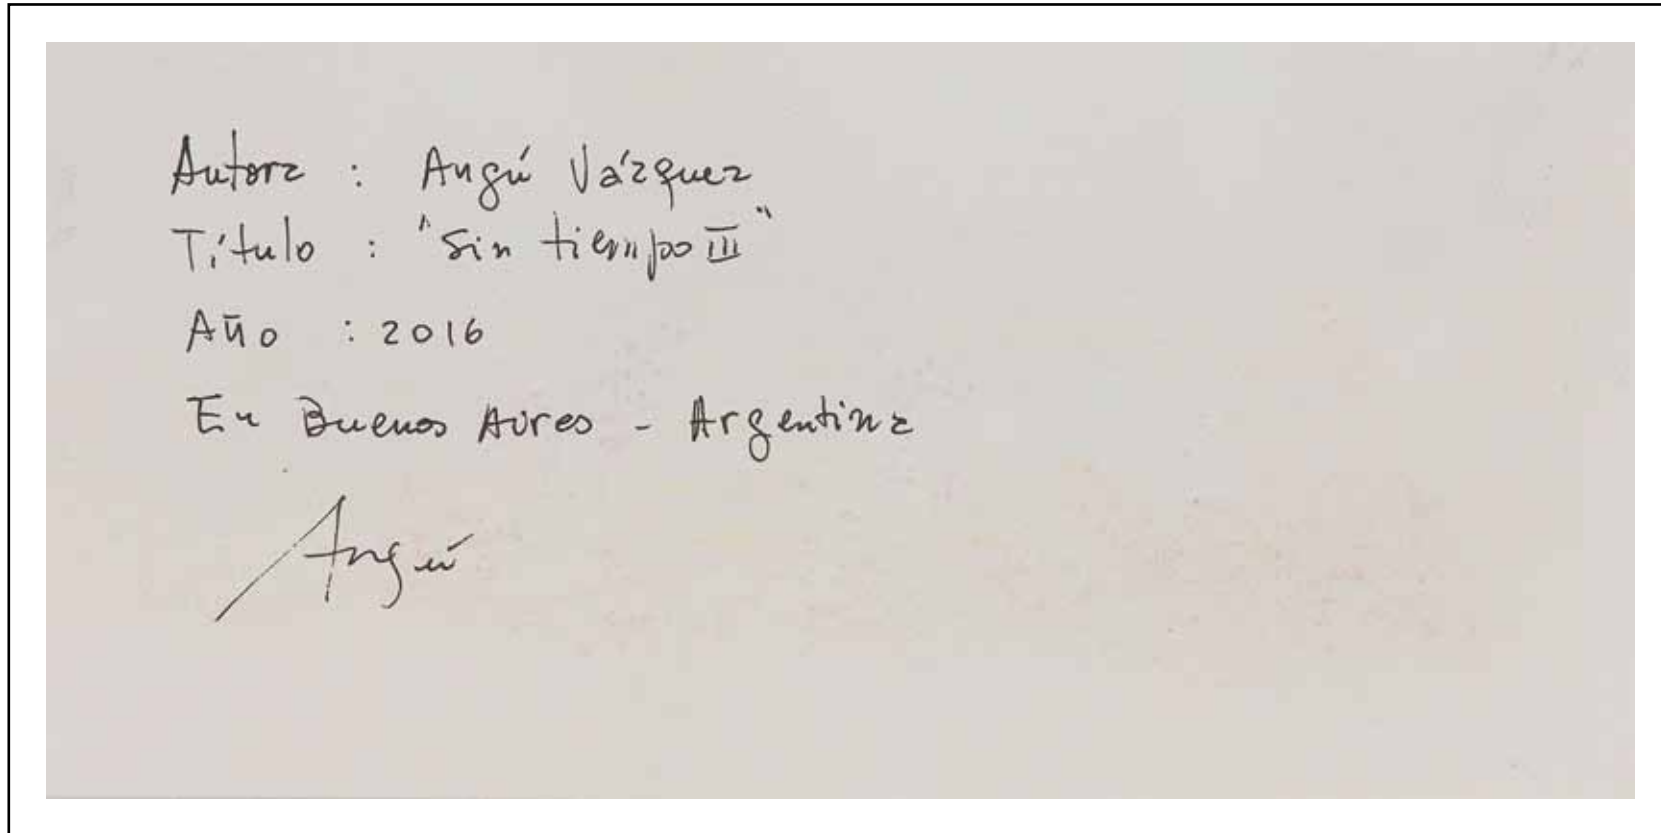 Autora : Angú Vázquez
Título : "Sin tiempo III"
Año : 2016
En Buenos Aires - Argentina
Angú